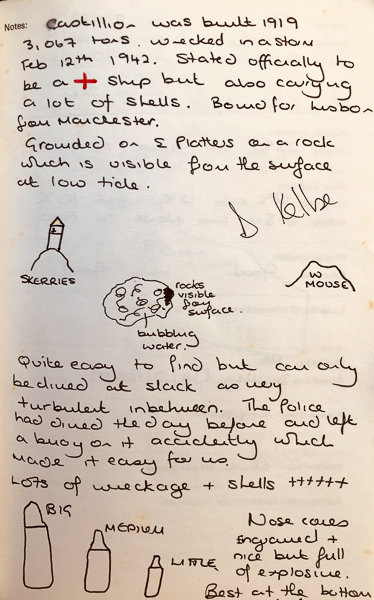 Notes: Castillion was built 1919
3,067 tons. wrecked in a storm
Feb 12th 1942. Stated officially to
be a + ship but also carrying
a lot of shells. Bound for Lisbon
from Manchester.
Grounded on E Platters on a rock
which is visible from the surface
at low tide.
D Kelbe
SKERRIES
rocks
visible
from
surface.
W
MOUSE
bubbling
water.
Quite easy to find but can only
be dived at slack as very
turbulent inbetween. The Police
had dived the day before and left
a buoy on it accidently which
made it easy for us.
LOTS of wreckage + shells ++++++
BIG
MEDIUM
LITTLE
Nose cones
engraved +
nice but full
of explosive.
Best at the bottom